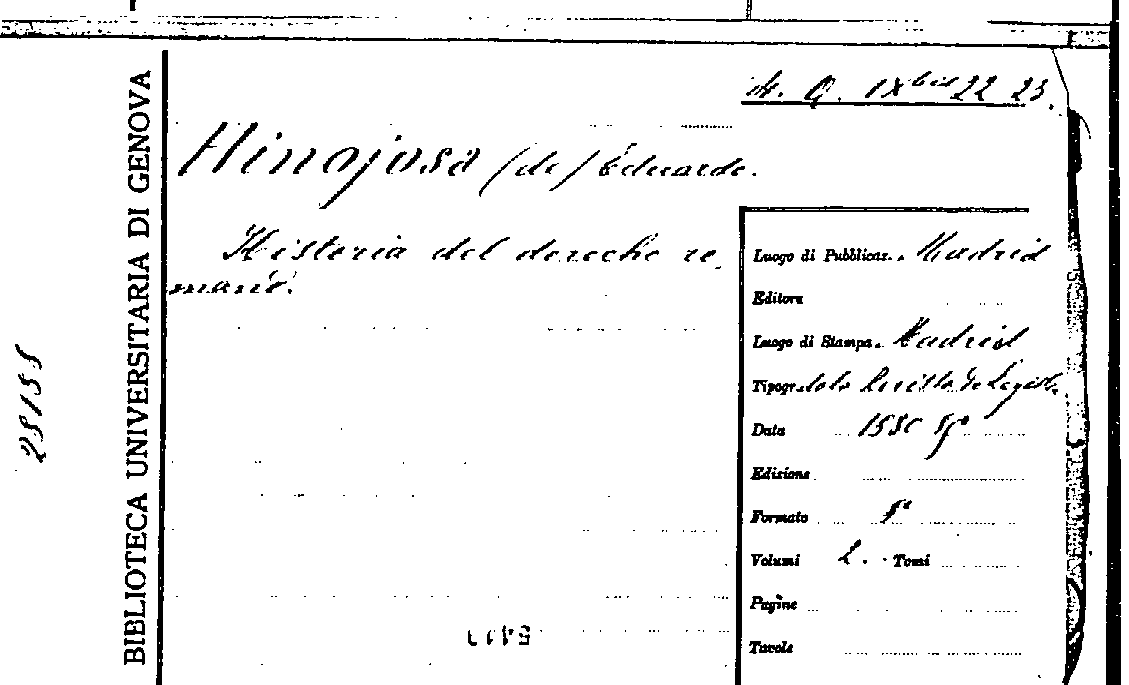 4. Q. IX bis 22 23.
Hinojosa (de) Eduardo.
Historia del derecho ro
mano.
Luogo di Pubblicaz. Madrid
Editore
Luogo di Stampa. Madrid
Tipogr. de la Revista de Legisl.
Data 1880 sgg
Edizione
Formato 8°
Volumi 2. Tomi
Pagine
Tavole
BIBLIOTECA UNIVERSITARIA DI GENOVA
23155